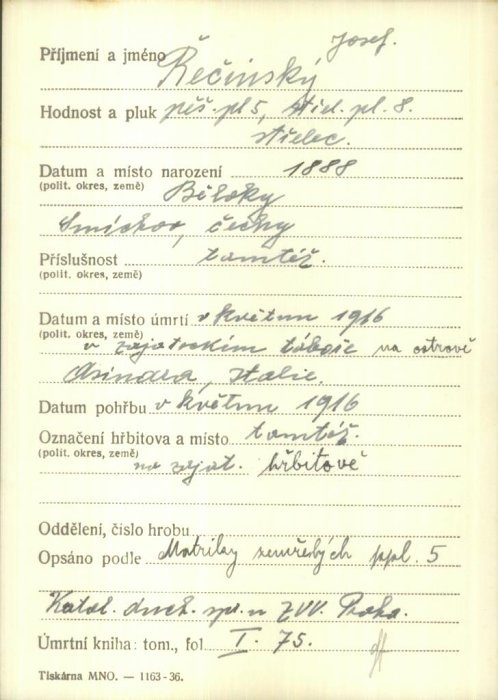 Josef.
Příjmení a jméno Řečinský
Hodnost a pluk pěš. pl 5, střel. pl. 8.
střelec.
Datum a místo narození 1888
(polit. okres, země) Běloky
Smíchov, Čechy
Příslušnost tamtéž.
(polit. okres, země)
Datum a místo úmrtí v květnu 1916
(polit. okres, země)
v zajateckém táboře na ostrově
Asinara, Italie.
Datum pohřbu v květnu 1916
Označení hřbitova a místo tamtéž.
(polit. okres, země)
na zajat. hřbitově
Oddělení, číslo hrobu
Opsáno podle Matriky zemřelých ppl. 5
Katol. duch. spr. u ZVV. Praha.
Úmrtní kniha: tom., fol I. 75.
Tiskárna MNO. — 1163-36.